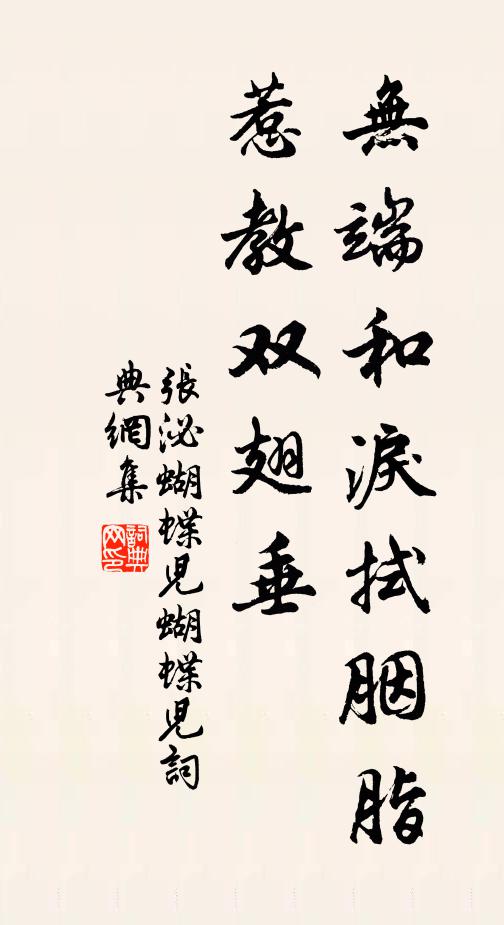 無端和淚拭胭脂
惹教双翅垂
張泌蝴蝶児蝴蝶児詞
典網集
詞典
网印